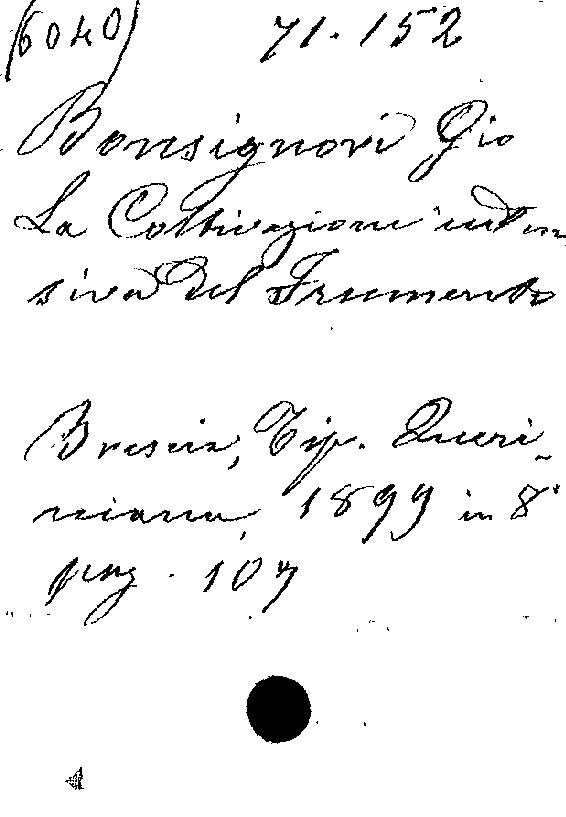 (6040) 71.152
Bonsignori Gio
La Coltivazione inten
siva del Frumento
Brescia, Tip. Queri-
niana, 1899 in 8°
pag. 107